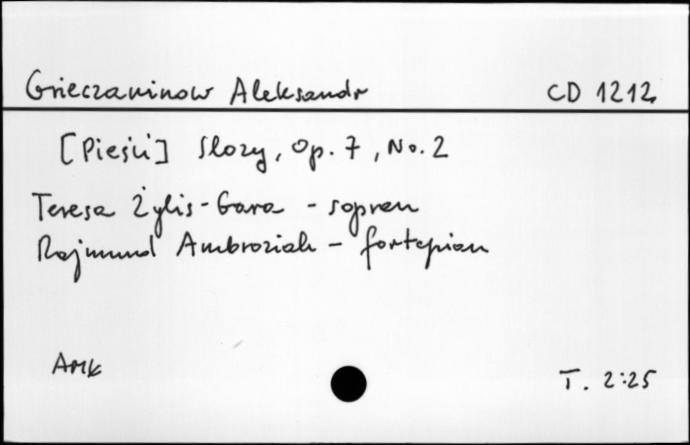 Grieczaninow Aleksandr CD 1212
[Pieśni] Slozy, Op. 7, No. 2
Teresa Żylis-Gara - sopran
Rajmund Ambroziak - fortepian
AMK T. 2:25